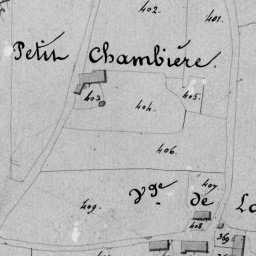 402.
401.
Petit Chambière.
403
404.
405.
406.
407.
Vge. de La
409.
408.
369